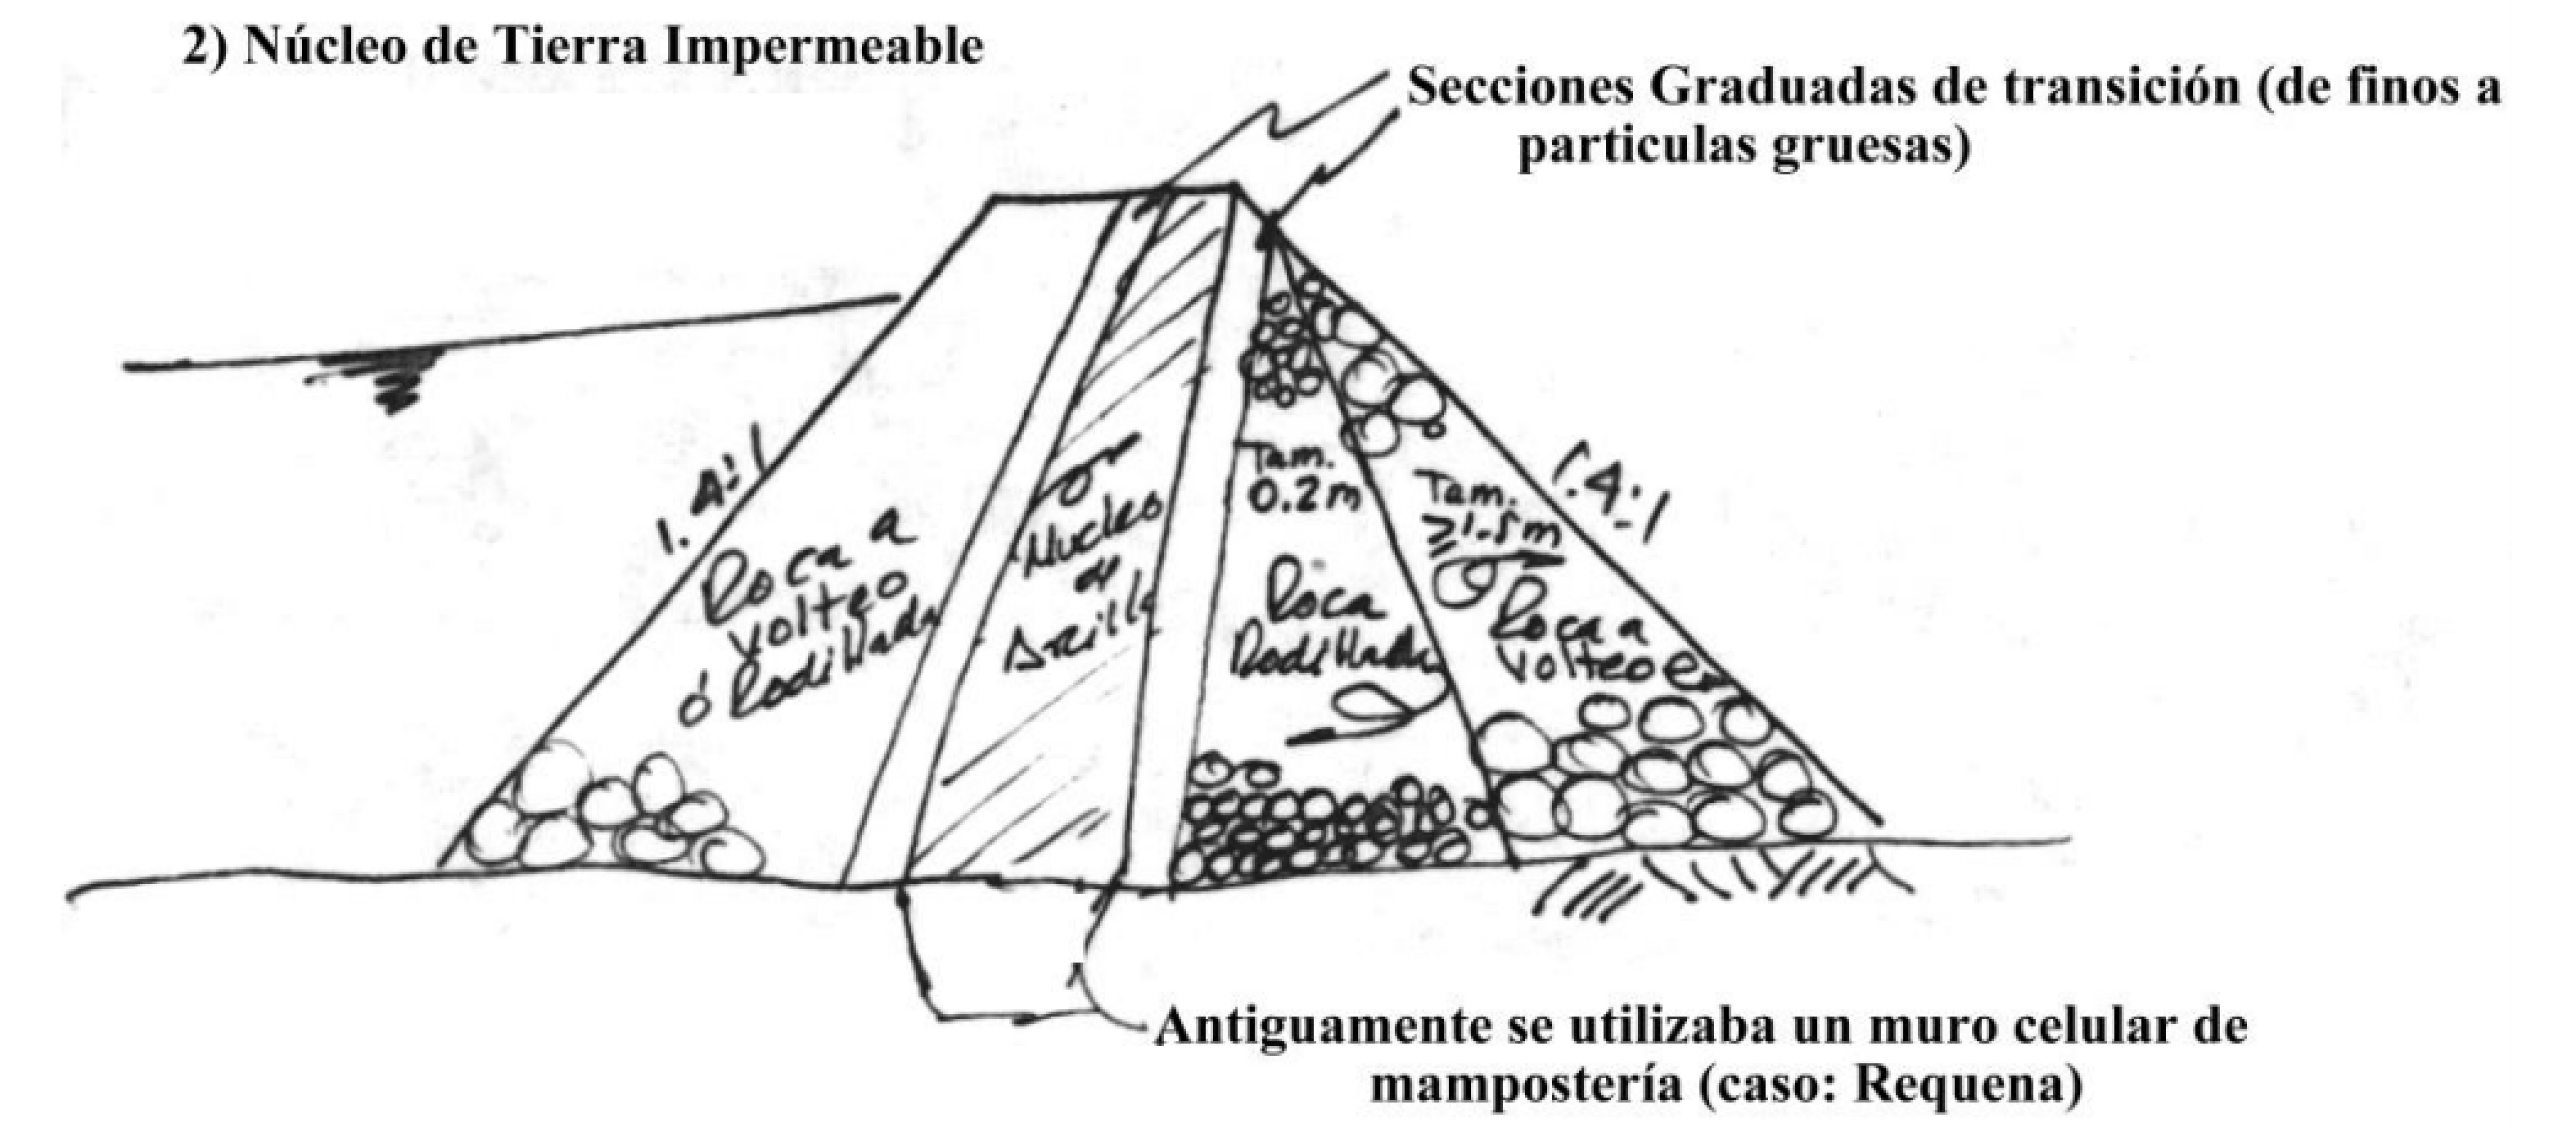 2) Núcleo de Tierra Impermeable
Secciones Graduadas de transición (de finos a
particulas gruesas)
1.4:1
Roca a
volteo
ó Rodillada
Nucleo
de
Arcilla
Tam.
0.2m
Roca
Rodillada
Tam.
≥1.5m
Roca a
volteo
1.4:1
Antiguamente se utilizaba un muro celular de
mampostería (caso: Requena)